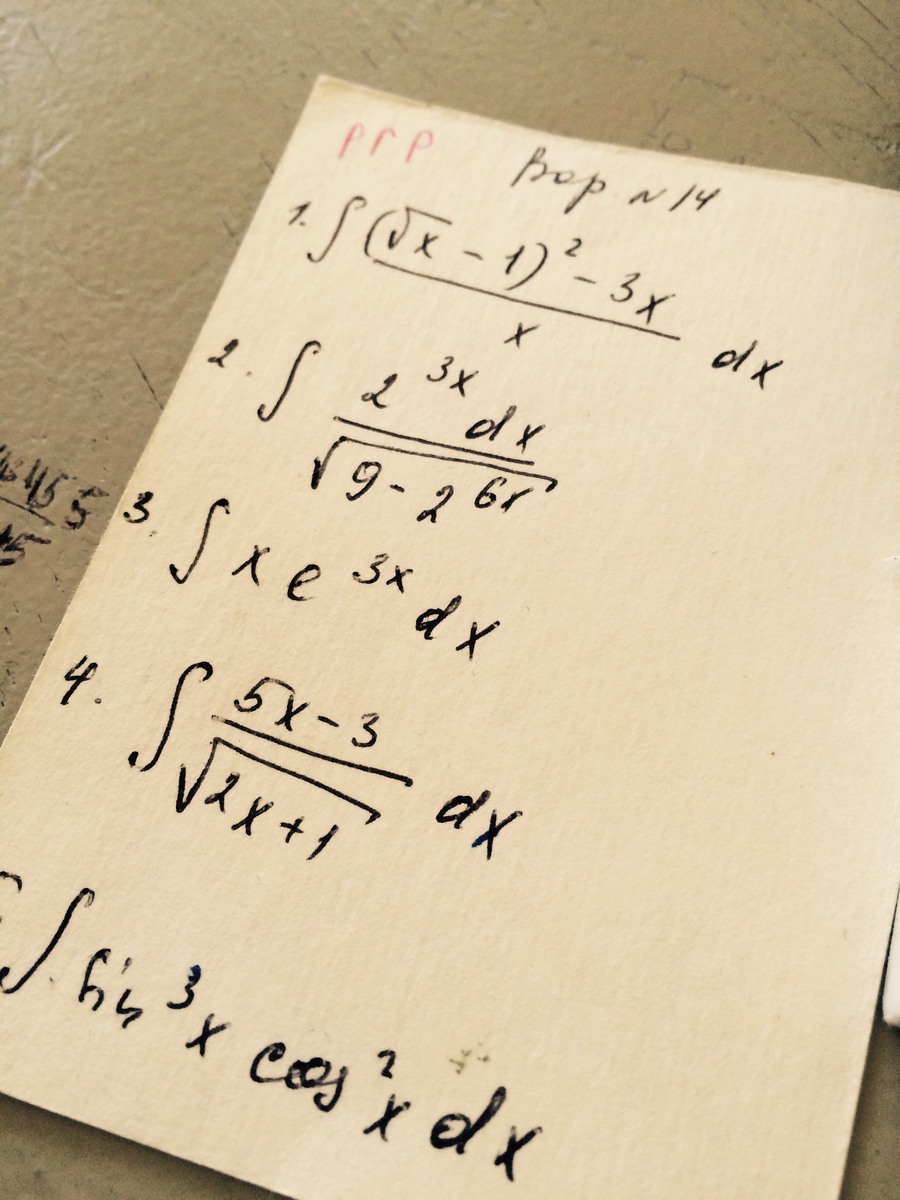 РГР Вар №14
1. ∫ ((√x - 1)² - 3x) / x dx
2. ∫ 2^(3x) dx / √(9 - 2^(6x))
3. ∫ x e^(3x) dx
4. ∫ (5x - 3) / √(2x + 1) dx
∫ sin³x cos²x dx